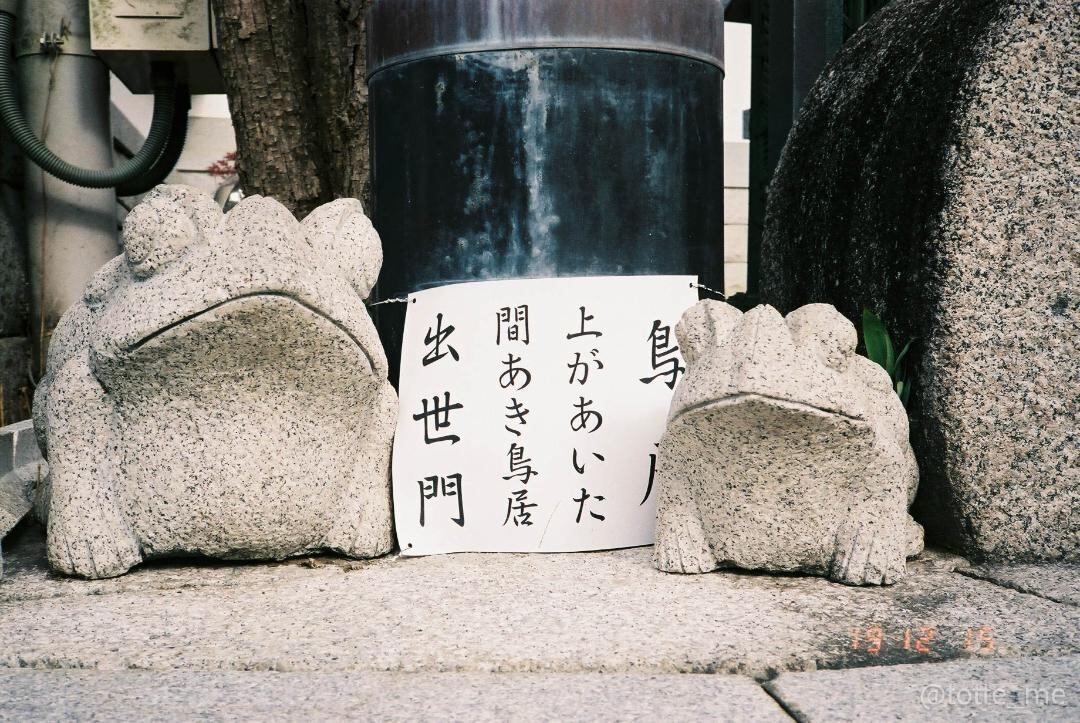 鳥
上があいた
間あき鳥居
出世門
19 12 15
@totte_me